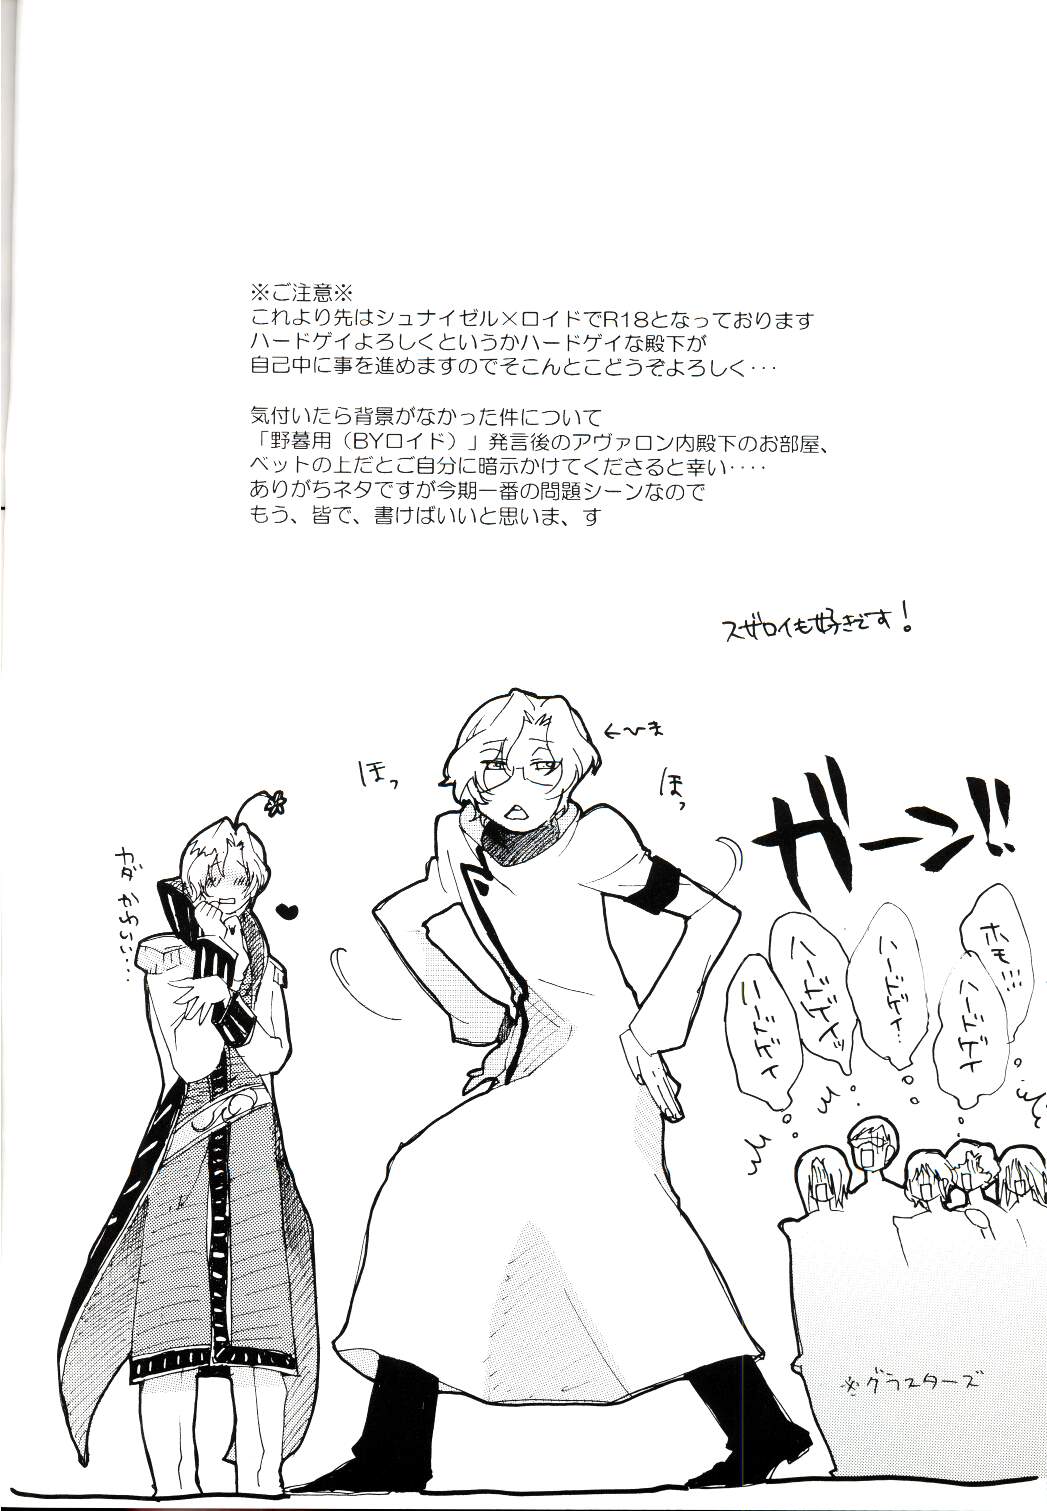 ※ご注意※
これより先はシュナイゼル×ロイドでR18となっております
ハードゲイよろしくというかハードゲイな殿下が
自己中に事を進めますのでそこんとこどうぞよろしく・・・
気付いたら背景がなかった件について
「野暮用（BYロイド）」発言後のアヴァロン内殿下のお部屋、
ベットの上だとご自分に暗示かけてくださると幸い・・・・
ありがちネタですが今期一番の問題シーンなので
もう、皆で、書けばいいと思いま、す
スザロイも好きです！
←へま
ほっ
ほっ
ガーン!!
カダ かわいい…
ホモ…
ハードゲイ
ハードゲイ…
ハードゲイッ
ハードゲイ
※グラスターズ